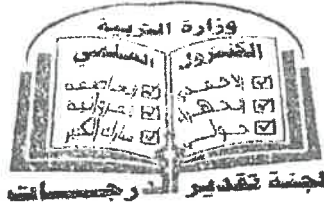 وزارة التربية
الكنترول العلمي
الاحمدي
الجهراء
حولي
العاصمة
الفروانية
مبارك الكبير
لجنة تقدير درجات